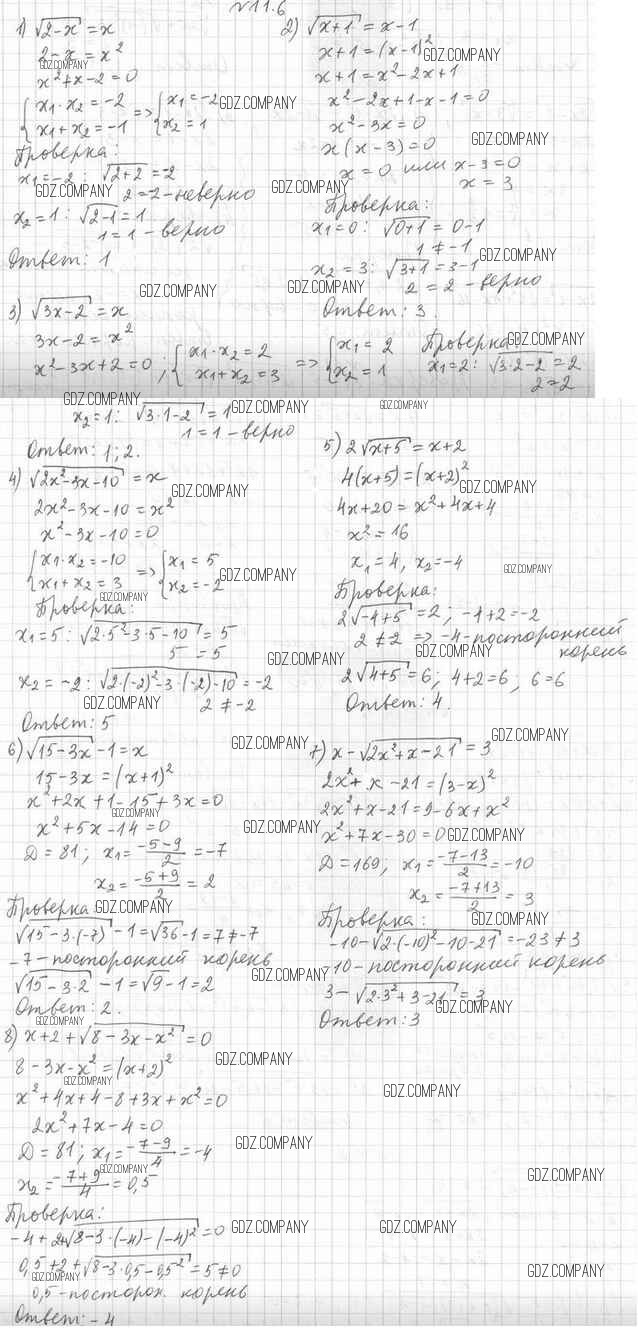 №11.6
1) √(2-x) = x
2-x = x²
x²+x-2=0
{x₁·x₂ = -2 => {x₁=-2
x₁+x₂=-1 x₂=1
Проверка:
x₁=-2: √(2+2) = -2
2=-2-неверно
x₂=1: √(2-1)=1
1=1-верно
Ответ: 1
2) √(x+1) = x-1
x+1=(x-1)²
x+1=x²-2x+1
x²-2x+1-x-1=0
x²-3x=0
x(x-3)=0
x=0 или x-3=0
x=3
Проверка:
x₁=0: √(0+1) = 0-1
1≠-1
x₂=3: √(3+1)=3-1
2=2-верно
Ответ: 3.
3) √(3x-2) = x
3x-2=x²
x²-3x+2=0; {x₁·x₂=2 => {x₁=2
x₁+x₂=3 x₂=1
Проверка:
x₁=2: √(3·2-2)=2
2=2
x₂=1: √(3·1-2)=1
1=1-верно
Ответ: 1; 2.
4) √(2x²-3x-10) = x
2x²-3x-10=x²
x²-3x-10=0
{x₁·x₂=-10 => {x₁=5
x₁+x₂=3 x₂=-2
Проверка:
x₁=5: √(2·5²-3·5-10)=5
5=5
x₂=-2: √(2·(-2)²-3·(-2)-10=-2
2≠-2
Ответ: 5
5) 2√(x+5) = x+2
4(x+5)=(x+2)²
4x+20=x²+4x+4
x²=16
x₁=4, x₂=-4
Проверка:
2√(-4+5)=2; -4+2=-2
2≠2 => -4-посторонний
корень
2√(4+5)=6; 4+2=6, 6=6
Ответ: 4.
6) √(15-3x)-1=x
15-3x=(x+1)²
x²+2x+1-15+3x=0
x²+5x-14=0
D=81; x₁=(-5-9)/2=-7
x₂=(-5+9)/2=2
Проверка
√(15-3·(-7))-1=√36-1=7≠-7
-7-посторонний корень
√(15-3·2)-1=√9-1=2
Ответ: 2.
7) x-√(2x²+x-21)=3
2x²+x-21=(3-x)²
2x²+x-21=9-6x+x²
x²+7x-30=0
D=169, x₁=(-7-13)/2=-10
x₂=(-7+13)/2=3
Проверка:
-10-√(2·(-10)²-10-21)=-23≠3
-10-посторонний корень
3-√(2·3²+3-21)=3
Ответ: 3
8) x+2+√(8-3x-x²)=0
8-3x-x²=(x+2)²
x²+4x+4-8+3x+x²=0
2x²+7x-4=0
D=81; x₁=(-7-9)/4=-4
x₂=(-7+9)/4=0,5
Проверка:
-4+2+√(8-3·(-4)-(-4)²)=0
0,5+2+√(8-3·0,5-0,5²)=5≠0
0,5-посторон. корень
Ответ: -4
GDZ.COMPANY